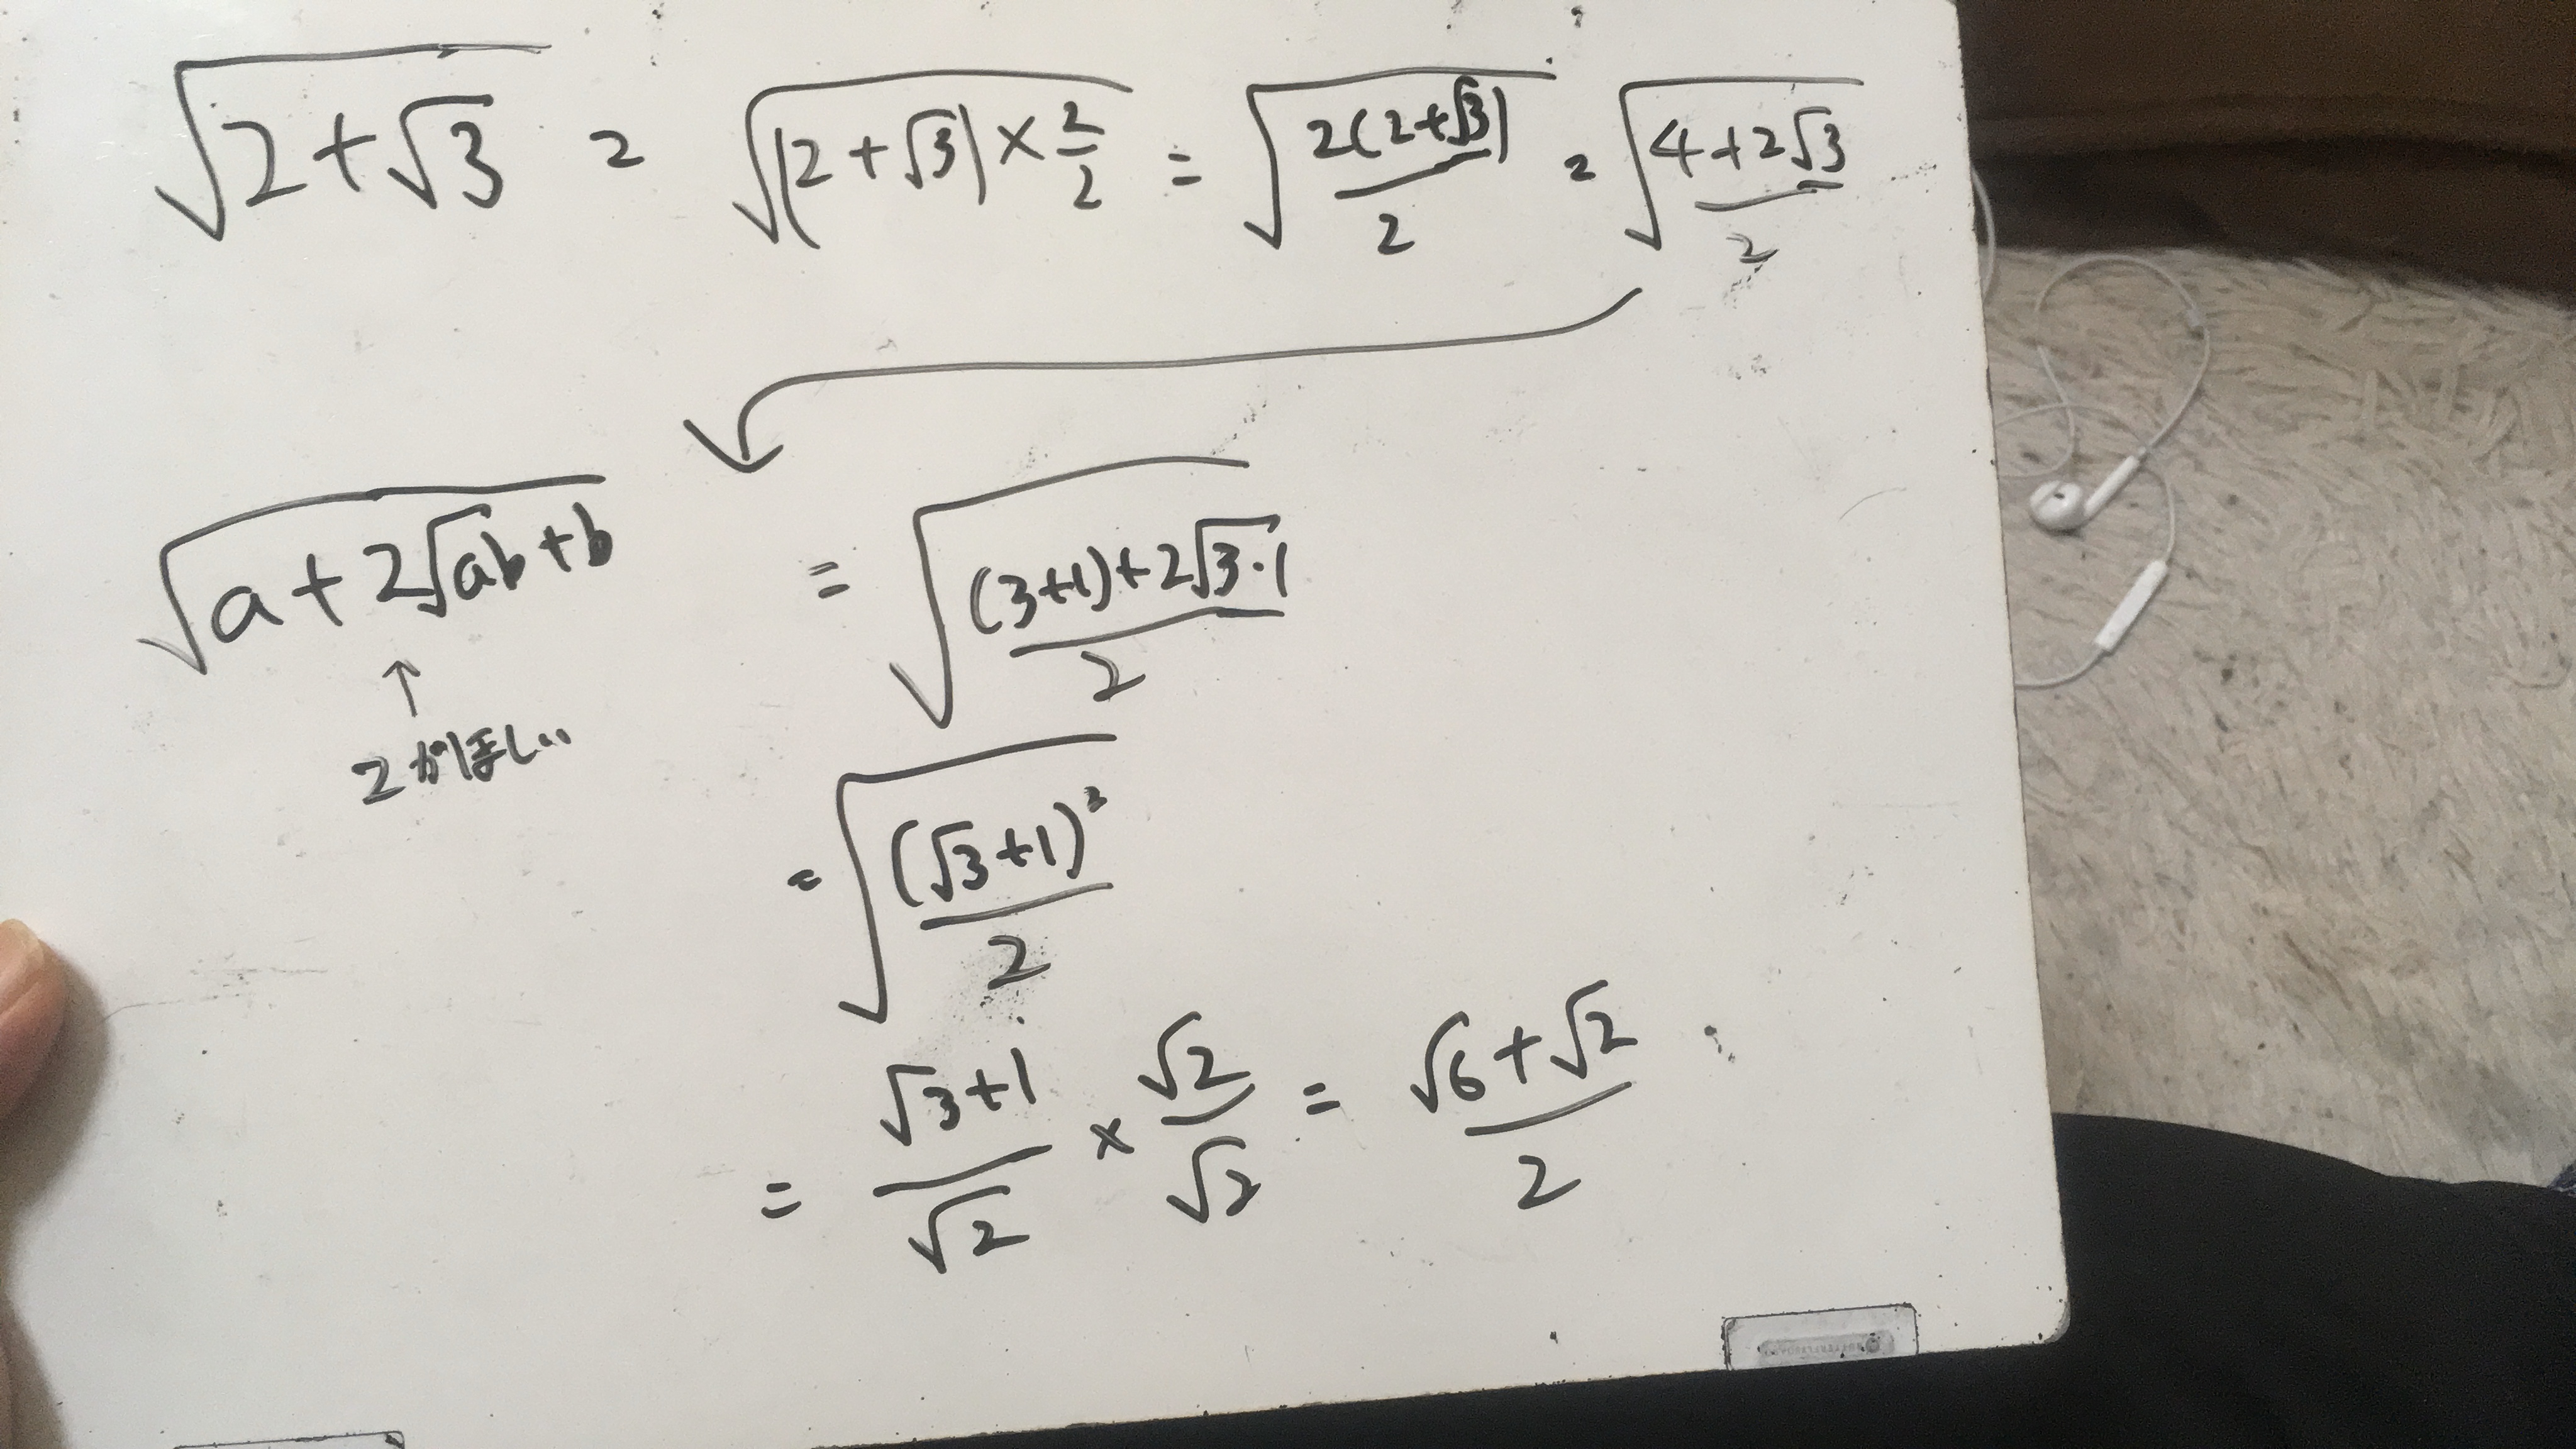 √(2+√3) = √((2+√3)×2/2) = √(2(2+√3)/2) = √((4+2√3)/2)
√(a+2√ab+b)
↑
2がほしい
= √(((3+1)+2√3·1)/2)
= √((√3+1)²/2)
= (√3+1)/√2 × √2/√2 = (√6+√2)/2